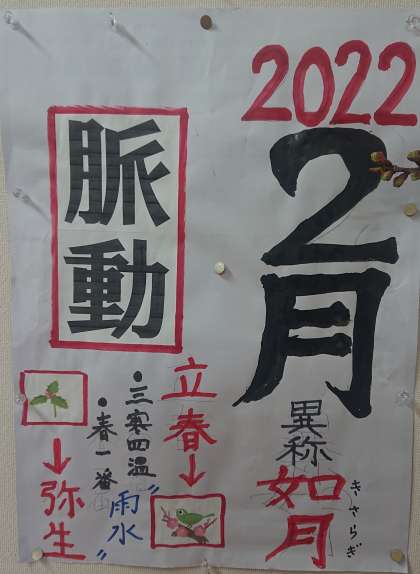 2022
2月
異称
如月
きさらぎ
脈動
立春↓
•三寒四温
"雨水
•春一番
↓弥生"